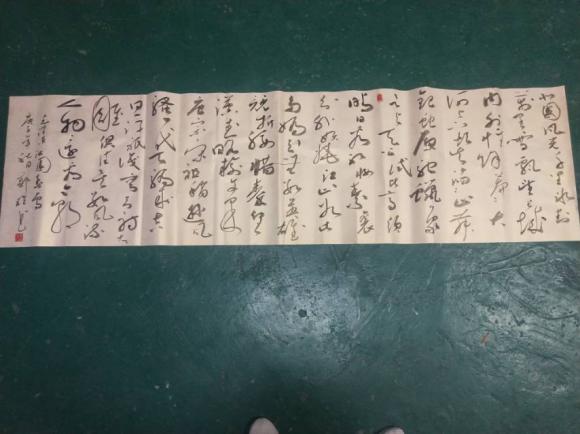 北国风光千里冰封
万里雪飘望长城
内外惟余莽莽大
河上下顿失滔滔山舞
银蛇原驰蜡象
欲与天公试比高须
晴日看红妆素裹
分外妖娆江山如此
多娇引无数英雄
竞折腰惜秦皇
汉武略输文采
唐宗宋祖稍逊风
骚一代天骄成吉
思汗只识弯弓射大
雕俱往矣数风流
人物还看今朝
沁园春雪